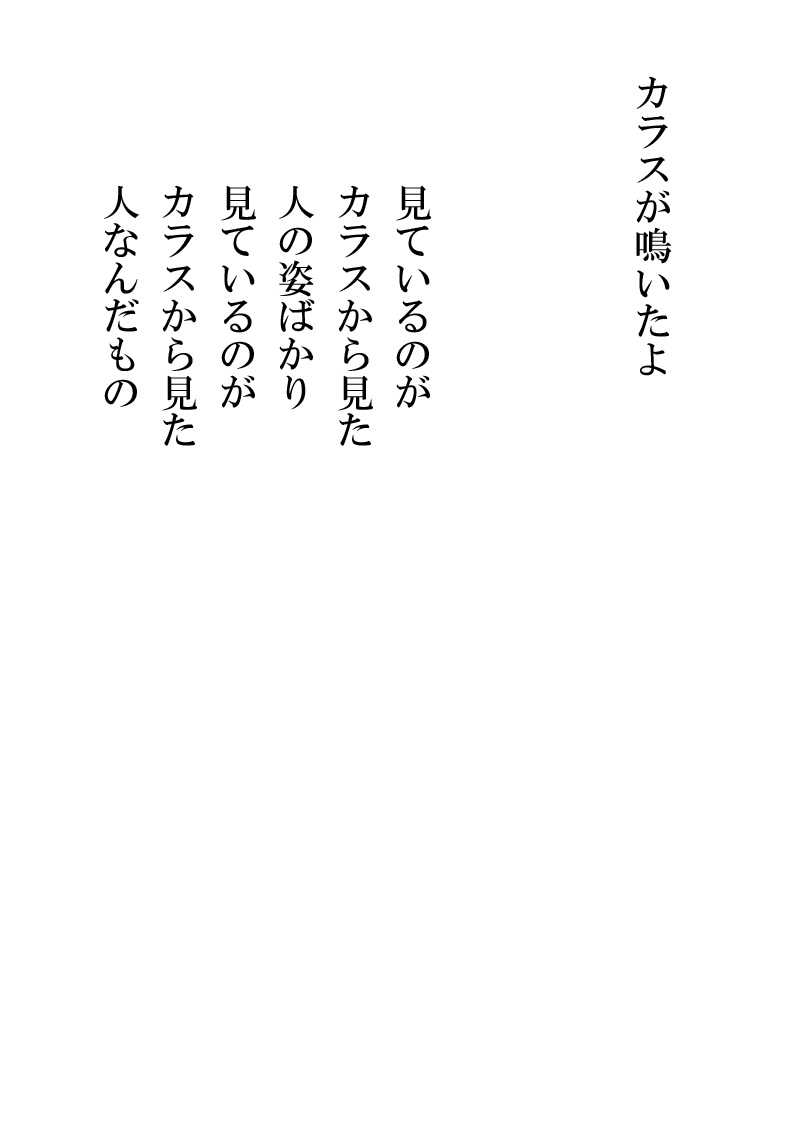 カラスが鳴いたよ
見ているのが
カラスから見た
人の姿ばかり
見ているのが
カラスから見た
人なんだもの